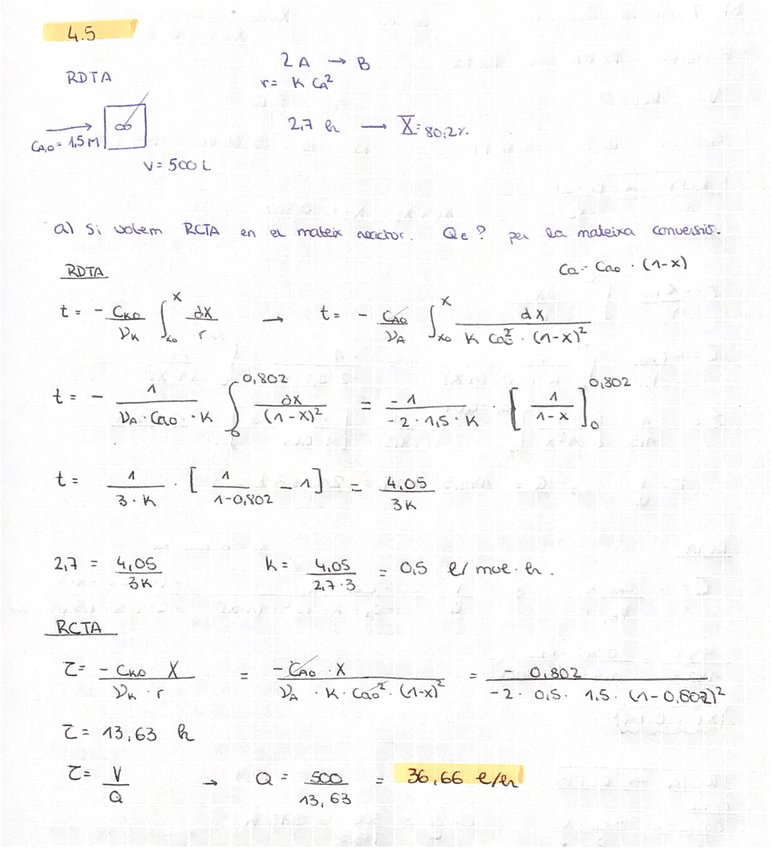 4.5
2A → B
RDTA
r = K CA²
2,7 h → X = 80,2%
CA,0 = 1,5 M
V = 500 L
a) Si volem RCTA en el mateix reactor. Qe? per la mateixa conversió.
Ca = Cao · (1-x)
RDTA
t = - CK0/νK ∫x0^X dX/r → t = - CA0/νA ∫x0^X dX/(K Cao² · (1-X)²)
t = - 1/(νA · Cao · K) ∫0^0,802 dX/(1-X)² = -1/(-2 · 1,5 · K) · [1/(1-X)]0^0,802
t = 1/(3 · K) · [1/(1-0,802) - 1] = 4,05/3K
2,7 = 4,05/3K K = 4,05/(2,7 · 3) = 0,5 l/mol · h.
RCTA
τ = -CK0 X/(νK · r) = -CA0 · X/(νA · K · Cao² · (1-X)²) = -0,802/(-2 · 0,5 · 1,5 · (1-0,802)²)
τ = 13,63 h
τ = V/Q → Q = 500/13,63 = 36,66 l/h